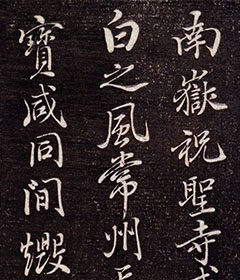 南嶽祝聖寺
白之風常州
寶咸同間燬